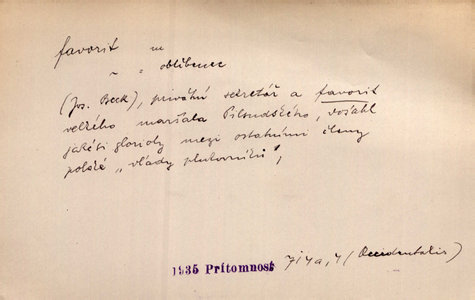 favorit m
~ = oblíbenec
(Jos. Beck), privátní sekretář a favorit
velkého maršála Pilsudského, došel
jakési glorioly mezi ostatními členy
polské „vlády plukovníků",
1935 Prítomnost (Occidentalis)